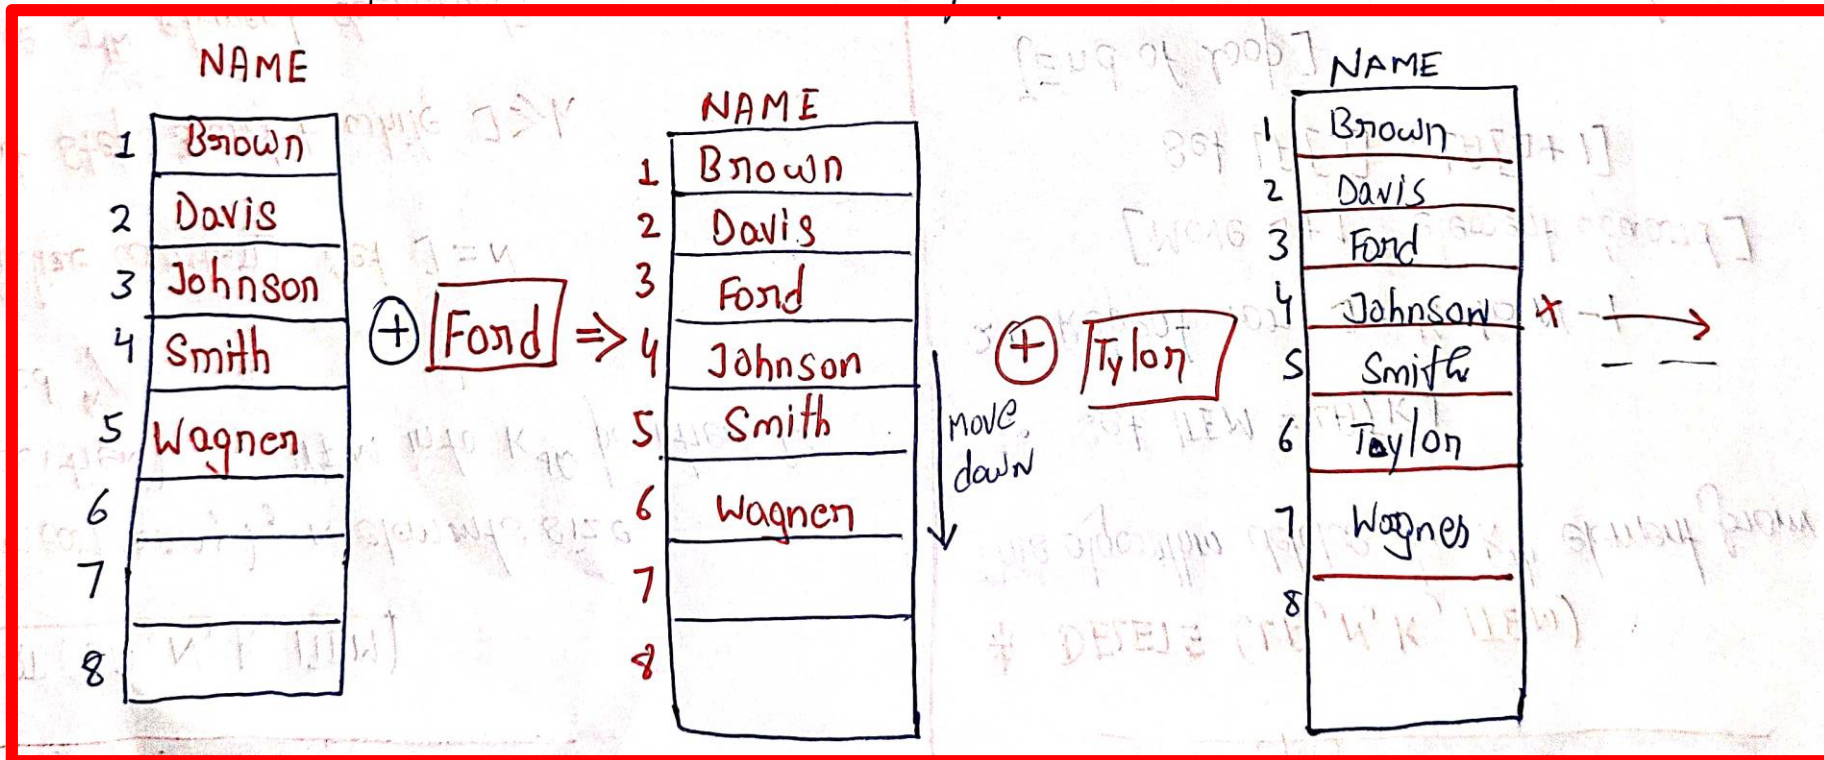 NAME
1 Brown
2 Davis
3 Johnson
4 Smith
5 Wagner
6
7
8
+ Ford =>
NAME
1 Brown
2 Davis
3 Ford
4 Johnson
5 Smith
6 Wagner
7
8
Move
down
+ Tylor
NAME
1 Brown
2 Davis
3 Ford
4 Johnson x
5 Smith
6 Taylor
7 Wagner
8
[End of loop]
while J ≥ K
* DELETE (LA, N, K, ITEM)